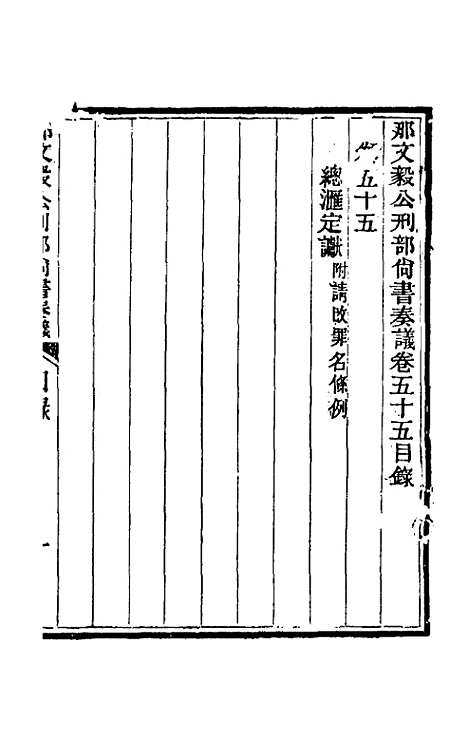 那文毅公刑部尚書奏議卷五十五目錄
五十五
總滙定讞附請改罪名條例
那文毅公刑部尚書奏議 目錄 一